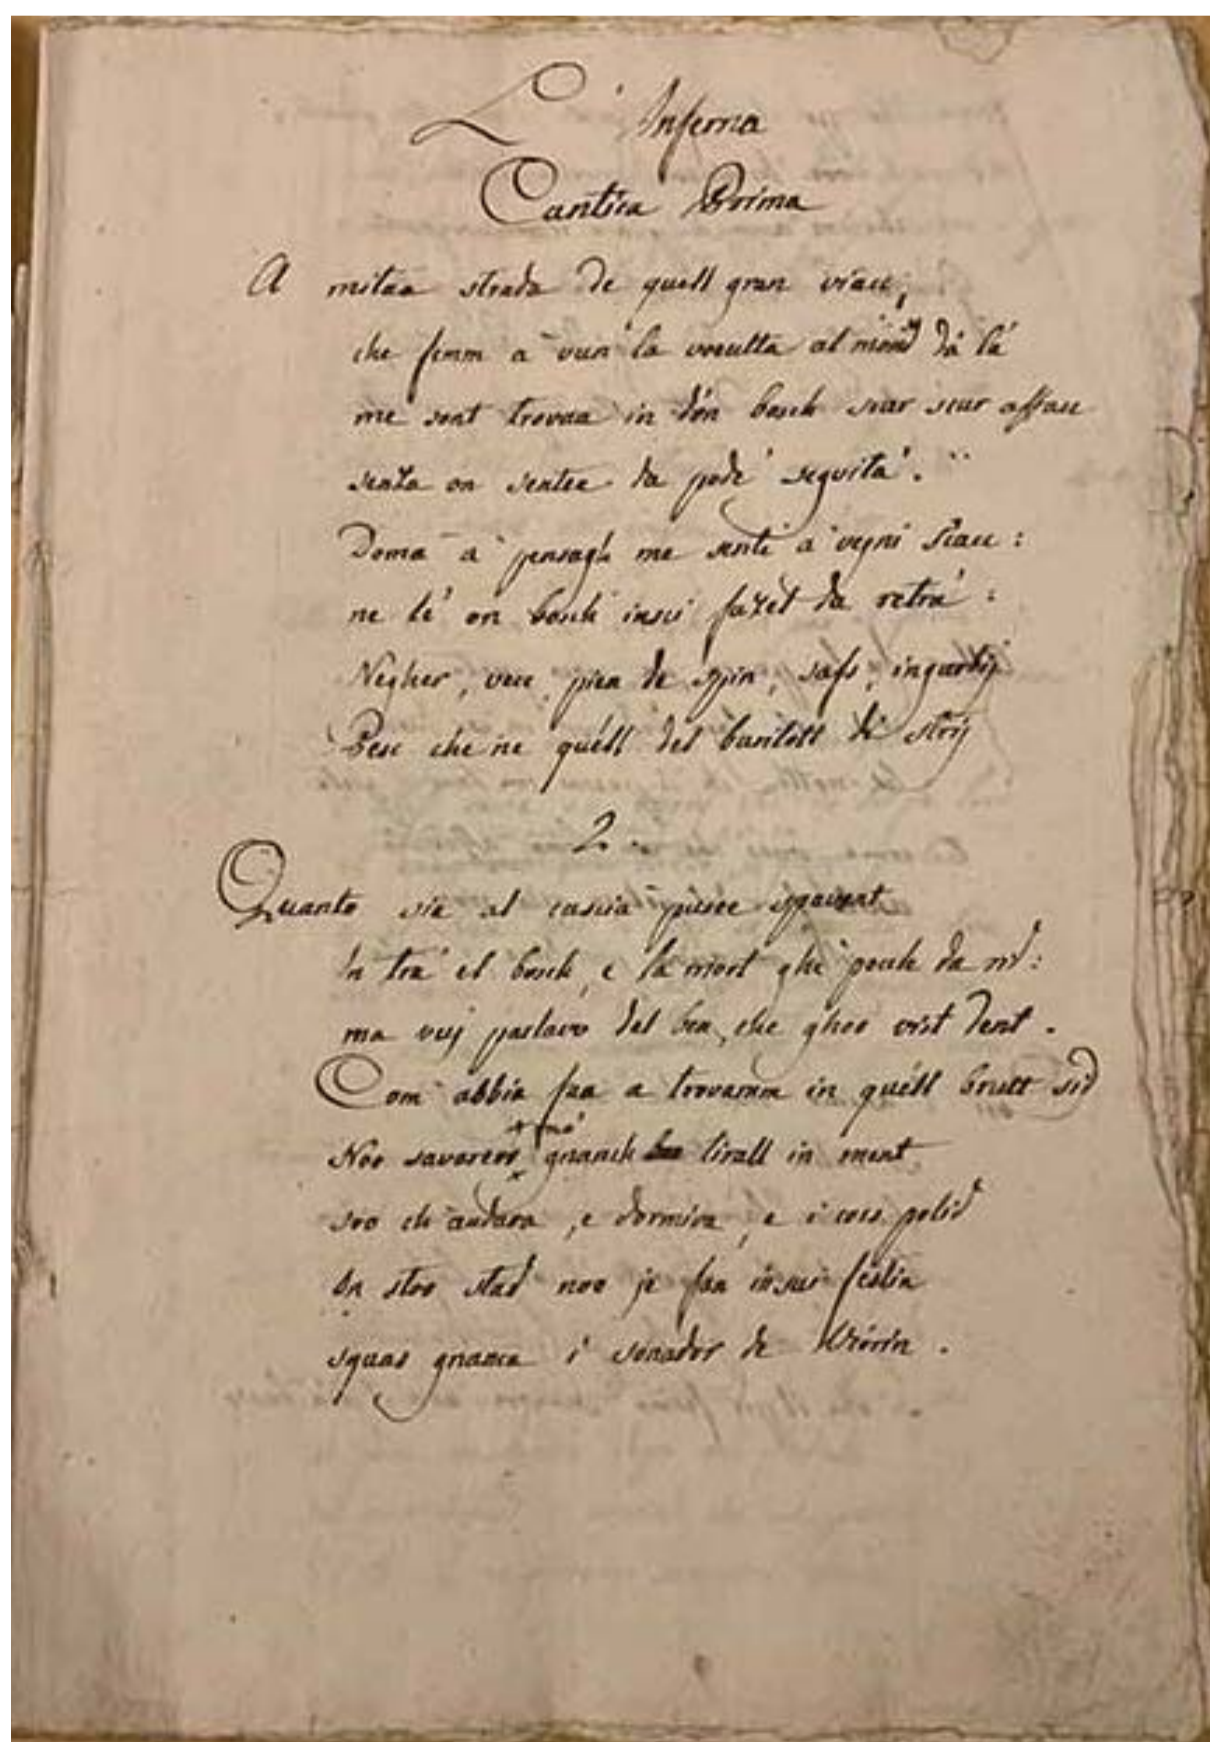 L' Inferna
Cantica Prima
A mitaa strada de quell gran viacc,
che femm a vun la voeulta al mond dà là
me sont trovaa in d'on bosch scur scur affacc
senza on sentee da podè seguità.
Domà a pensagh me senti a vegnì giacc:
ne l'è on bosch inscì fazel da retrà:
Negher, vecc, pien de spin, sass, ingarbij
Pesc che ne quell del barilott di strij
2.
Quanto sia al cascia pusee spavent
In trà el bosch, e la mort ghè pocch da rid:
ma vuj parlavv del ben, che g'hoo vist dent.
Com' abbia faa a trovamm in quell brutt sid
Noo savarevv gnanch mò tirall in ment
soo ch'andava, e dormiva, e i coss polid
In stoo stad noo je faa inscì festin
squas gnanca i sonador de Viorin.